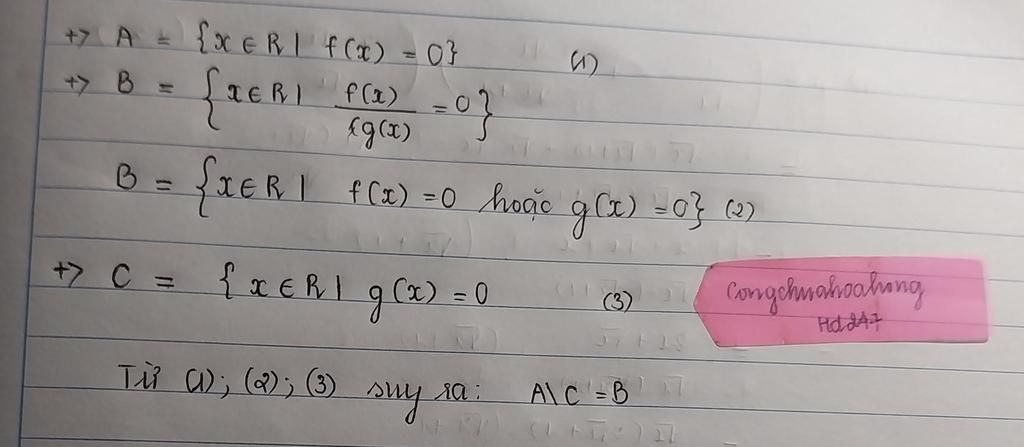 +> A = {x ∈ R | f(x) = 0} (1)
+> B = {x ∈ R | f(x)/{g(x) = 0}
B = {x ∈ R | f(x) = 0 hoặc g(x) = 0} (2)
+> C = {x ∈ R | g(x) = 0 (3)
Congchuahoahong
Hd247
Từ (1); (2); (3) suy ra: A\C = B